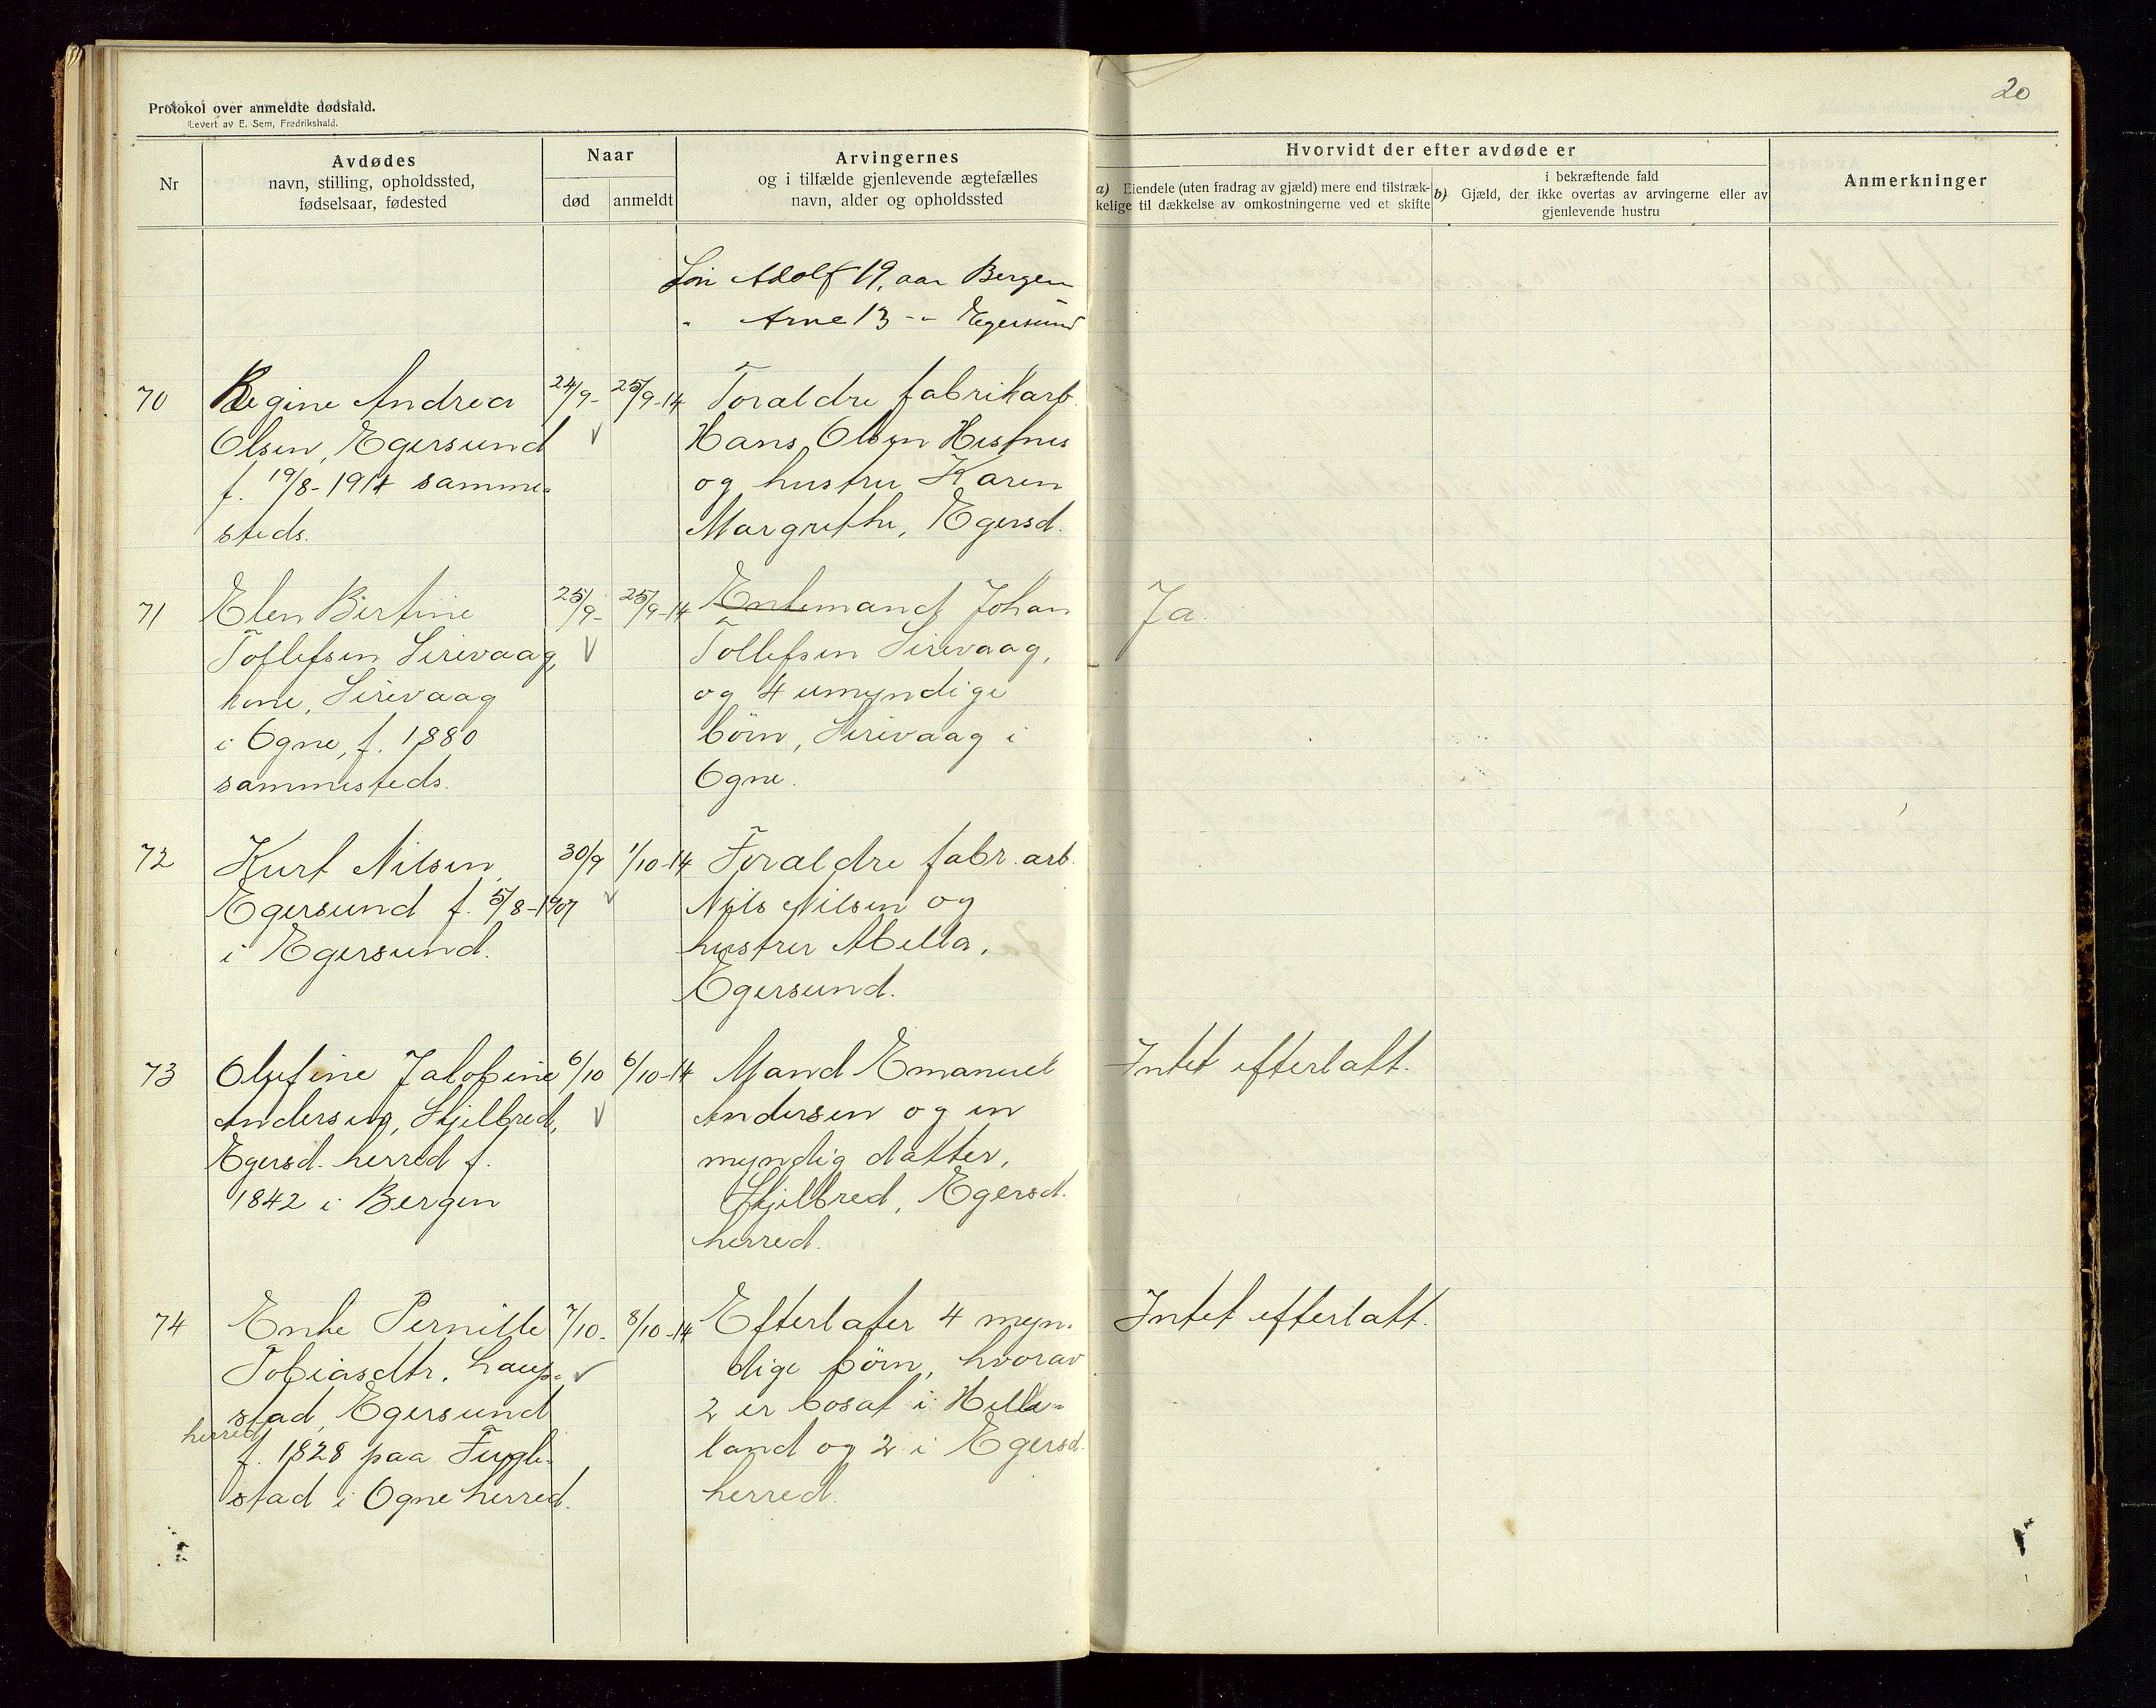 Protokol over anmeldte dødsfald.
Levert av E. Sem, Fredrikshald.
20
Nr
Avdødes
navn, stilling, opholdssted,
fødselsaar, fødested
Naar
død
anmeldt
Arvingernes
og i tilfælde gjenlevende ægtefælles
navn, alder og opholdssted
Hvorvidt der efter avdøde er
a) Eiendele (uten fradrag av gjæld) mere end tilstræk-
kelige til dækkelse av omkostningerne ved et skifte
i bekræftende fald
b) Gjæld, der ikke overtas av arvingerne eller av
gjenlevende hustru
Anmerkninger
Søn Adolf 19, aar Bergen
" Arne 13 -"- Egersund
70
Regine Andrea
Olsen, Egersund
f. 19/8-1914 samme-
steds.
24/9-
25/9-14
Foraldre fabrikarb.
Hans Olsen Hestnes
og hustru Karen
Margrethe, Egersd.
71
Elen Bertine
Tollefsen Sirevaag,
kone, Sirevaag
i Ogne, f. 1880
sammesteds.
25/9-
25/9-14
Enkemand Johan
Tollefsen Sirevaag,
og 4 umyndige
børn, Sirevaag i
Ogne.
Ja.
72
Kurt Nilsen,
Egersund f. 5/8-1907
i Egersund.
30/9
1/10-14
Foraldre fabr. arb.
Nils Nilsen og
hustru Abella,
Egersund.
73
Olufine Jakobine
Andersen, Skjelbred,
Egersd. herred f.
1842 i Bergen
6/10
6/10-14
Mand Emanuel
Andersen og en
myndig datter,
Skjelbred, Egersd.
herred.
Intet efterlatt.
74
Enke Pernille
Tobiasdtr. Laup-
stad, Egersund
herred
f. 1828 paa Fugle-
stad i Ogne herred.
7/10-
8/10-14
Efterlater 4 myn-
dige børn, hvorav
2 er bosat i Helle-
land og 2 i Egersd.
herred.
Intet efterlatt.